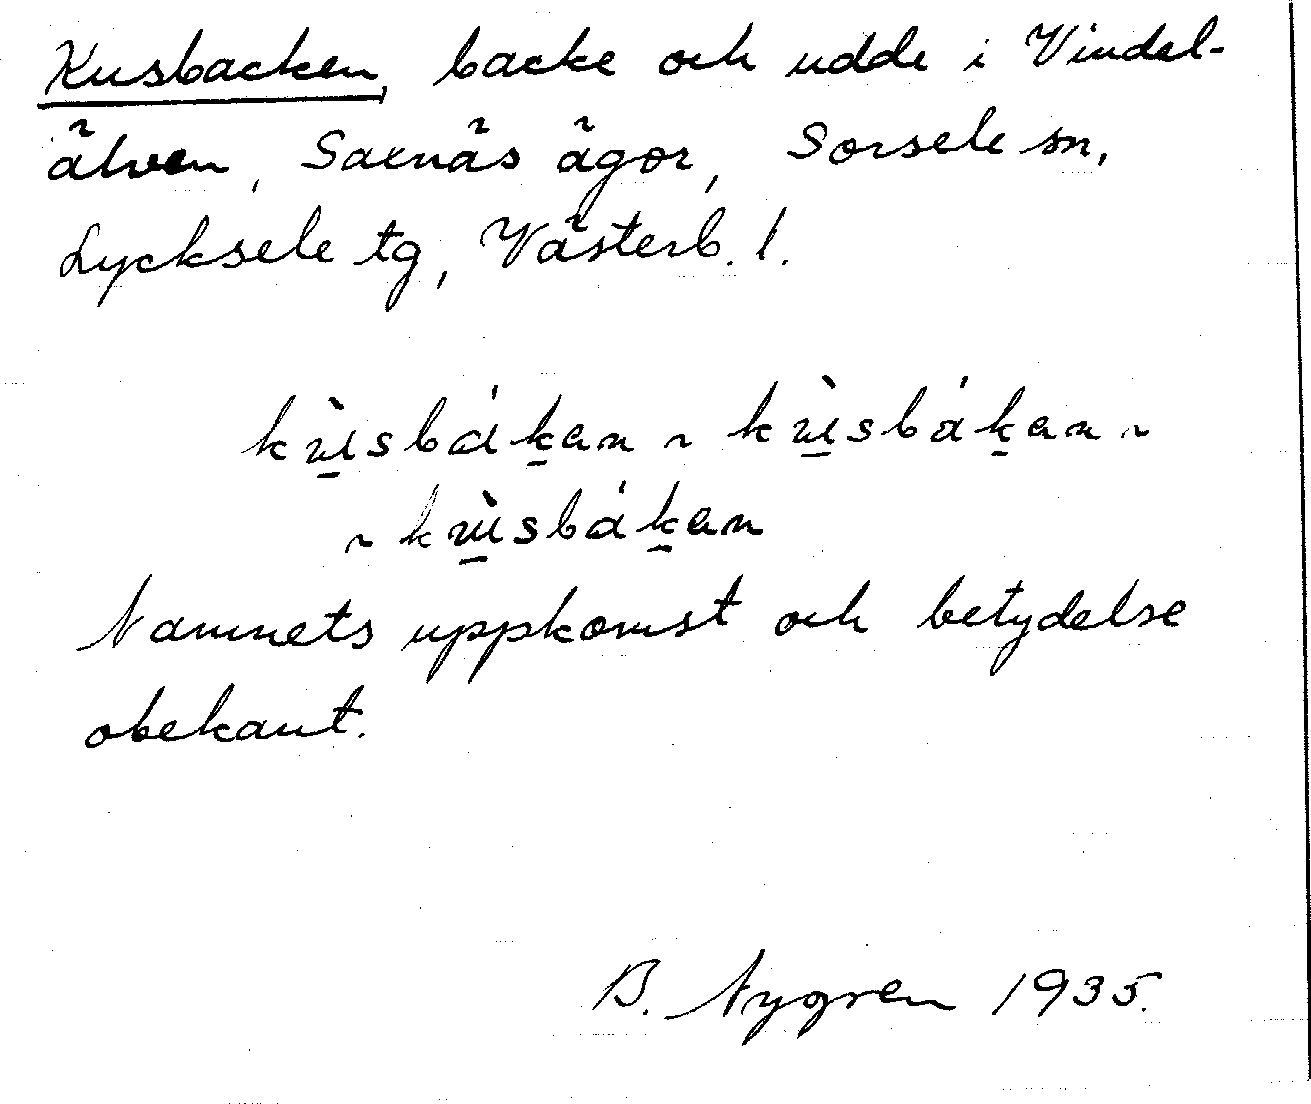 Kusbacken, backe och udde i Vindel-
älven, Saxnäs ägor, Sorsele sn,
Lycksele tg, Västerb. l.
kùsbák̠an ~ kùsbák̠an ~
~ kùsbák̠an
Namnets uppkomst och betydelse
obekant.
B. Nygren 1935.